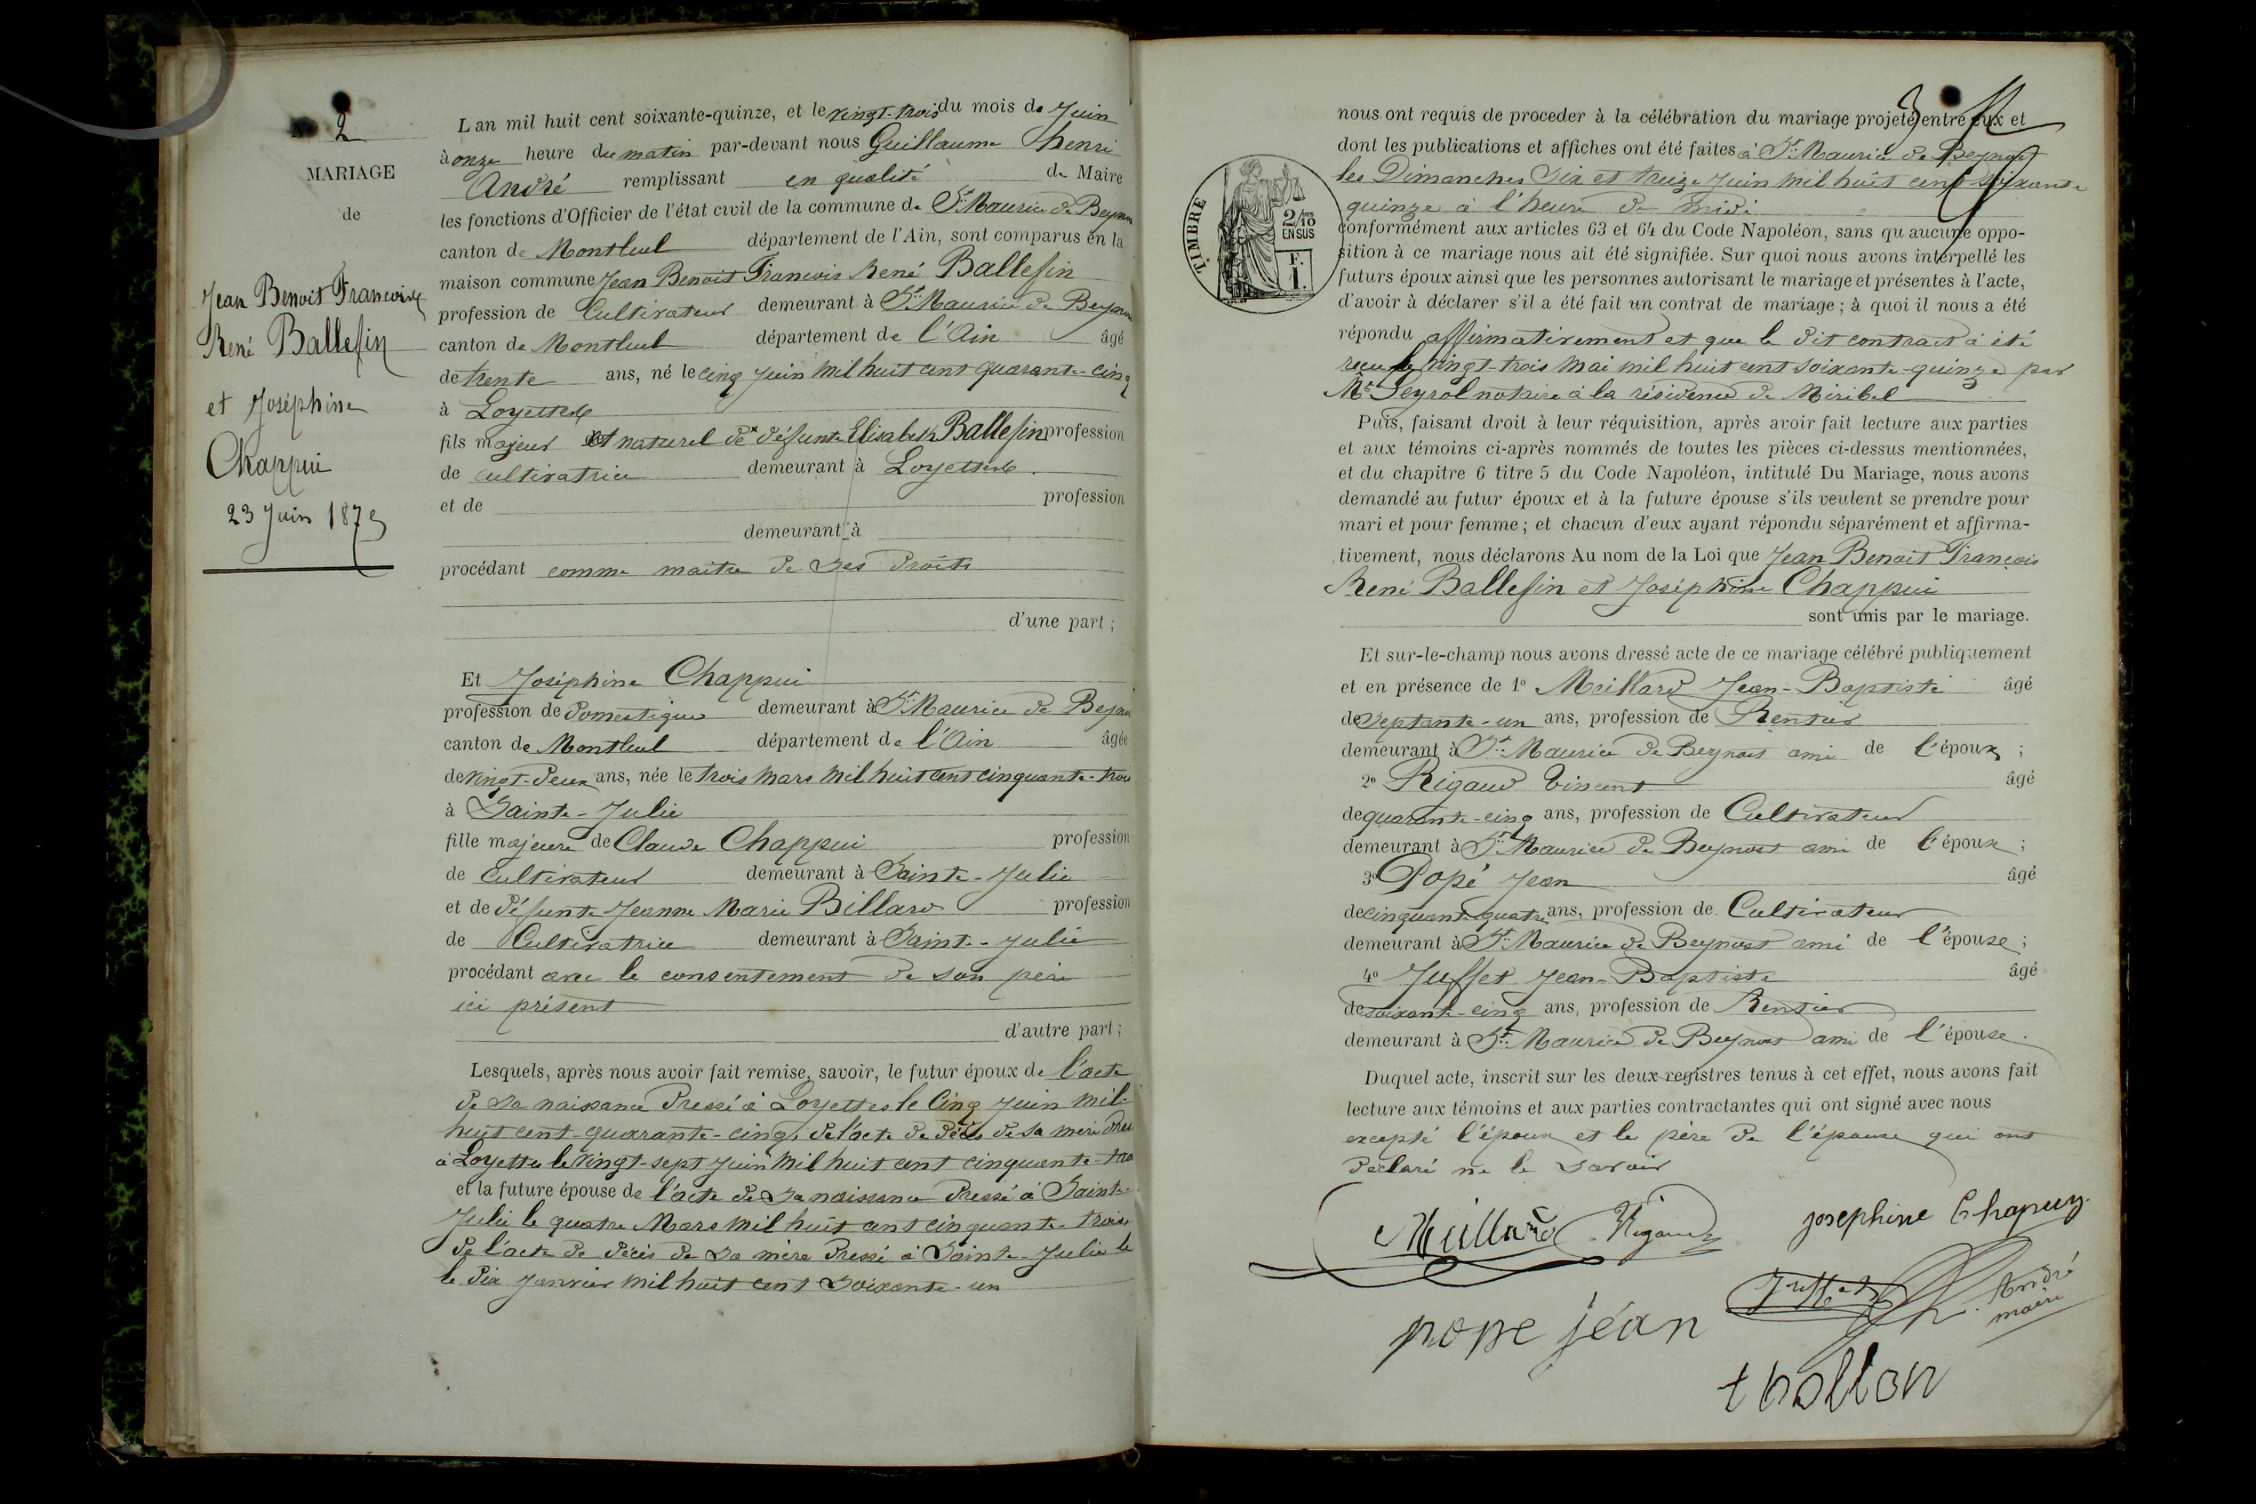 No 2
MARIAGE
de
Jean Benoit Francois
René Ballefin
et Joséphine
Chappui
23 Juin 1875
L'an mil huit cent soixante-quinze, et le vingt-trois du mois de Juin
à onze heure du matin par-devant nous Guillaume henri
André remplissant en qualité de Maire
les fonctions d'Officier de l'état civil de la commune de St. Maurice de Beynos
canton de Montluel département de l'Ain, sont comparus en la
maison commune Jean Benoit Francois René Ballefin
profession de Cultivateur demeurant à St. Maurice de Beynos
canton de Montluel département de l'Ain âgé
de trente ans, né le cinq Juin mil huit cent quarante-cinq
à Loyettes
fils majeur et naturel de défunte Elisabeth Ballefin profession
de cultivatrice demeurant à Loyettes
et de profession
demeurant à
procédant comme maitre de ses Droits
d'une part;
Et Joséphine Chappui
profession de Domestique demeurant à St. Maurice de Beynos
canton de Montluel département de l'Ain âgée
de vingt-deux ans, née le trois mars mil huit cent cinquante-trois
à Sainte-Julie
fille majeure de Claude Chappui profession
de Cultivateur demeurant à Sainte-Julie
et de défunte Jeanne Marie Billard profession
de Cultivatrice demeurant à Sainte-Julie
procédant avec le consentement de son père
ici présent
d'autre part;
Lesquels, après nous avoir fait remise, savoir, le futur époux de l'acte
de sa naissance Dressé à Loyettes le Cinq Juin mil-
huit cent-quarante-cinq, de l'acte de décès de sa mère
à Loyettes le Vingt-sept Juin mil huit cent cinquante
et la future épouse de l'acte de sa naissance Dressé à Sainte-
Julie le quatre Mars mil huit cent cinquante-trois
de l'acte de décès de sa mère Dressé à Sainte-Julie le
le Dix Janvier mil huit cent Soixante-un
3
TIMBRE
2/10 ENSUS
F. 1.
nous ont requis de proceder à la célébration du mariage projeté entre eux et
dont les publications et affiches ont été faites à St. Maurice de Beynost
les Dimanches Six et treize Juin mil huit cent soixante
quinze à l'heure de midi
conformément aux articles 63 et 64 du Code Napoléon, sans qu aucune oppo-
sition à ce mariage nous ait été signifiée. Sur quoi nous avons interpellé les
futurs époux ainsi que les personnes autorisant le mariage et présentes à l'acte,
d'avoir à déclarer s'il a été fait un contrat de mariage; à quoi il nous a été
répondu affirmativement et que le dit contract à été
reçu le vingt-trois Mai mil huit cent soixante-quinze par
Mt. Seyrol notaire à la résidence de Miribel
Puis, faisant droit à leur réquisition, après avoir fait lecture aux parties
et aux témoins ci-après nommés de toutes les pièces ci-dessus mentionnées,
et du chapitre 6 titre 5 du Code Napoléon, intitulé Du Mariage, nous avons
demandé au futur époux et à la future épouse s'ils veulent se prendre pour
mari et pour femme; et chacun d'eux ayant répondu séparément et affirma-
tivement, nous déclarons Au nom de la Loi que Jean Benoit François
René Ballefin et Joséphine Chappui
sont unis par le mariage.
Et sur-le-champ nous avons dressé acte de ce mariage célébré publiquement
et en présence de 1o Meillard Jean-Baptiste âgé
de Septante-un ans, profession de Rentier
demeurant à St. Maurice de Beynost ami de l'époux;
2o Rigaud Vincent âgé
de quarante-cinq ans, profession de Cultivateur
demeurant à St. Maurice de Beynost ami de l'époux;
3o Popé Jean âgé
de cinquante quatre ans, profession de Cultivateur
demeurant à St. Maurice de Beynost ami de l'épouse;
4o Juffet Jean-Baptiste âgé
de soixante-cinq ans, profession de Rentier
demeurant à St. Maurice de Beynost ami de l'épouse.
Duquel acte, inscrit sur les deux registres tenus à cet effet, nous avons fait
lecture aux témoins et aux parties contractantes qui ont signé avec nous
excepté l'époux et le père de l'épouse qui ont
déclaré ne le savoir
Meillard Rigaud Josephine Chapuy
Juffet André
maire
pope jéan
thollon